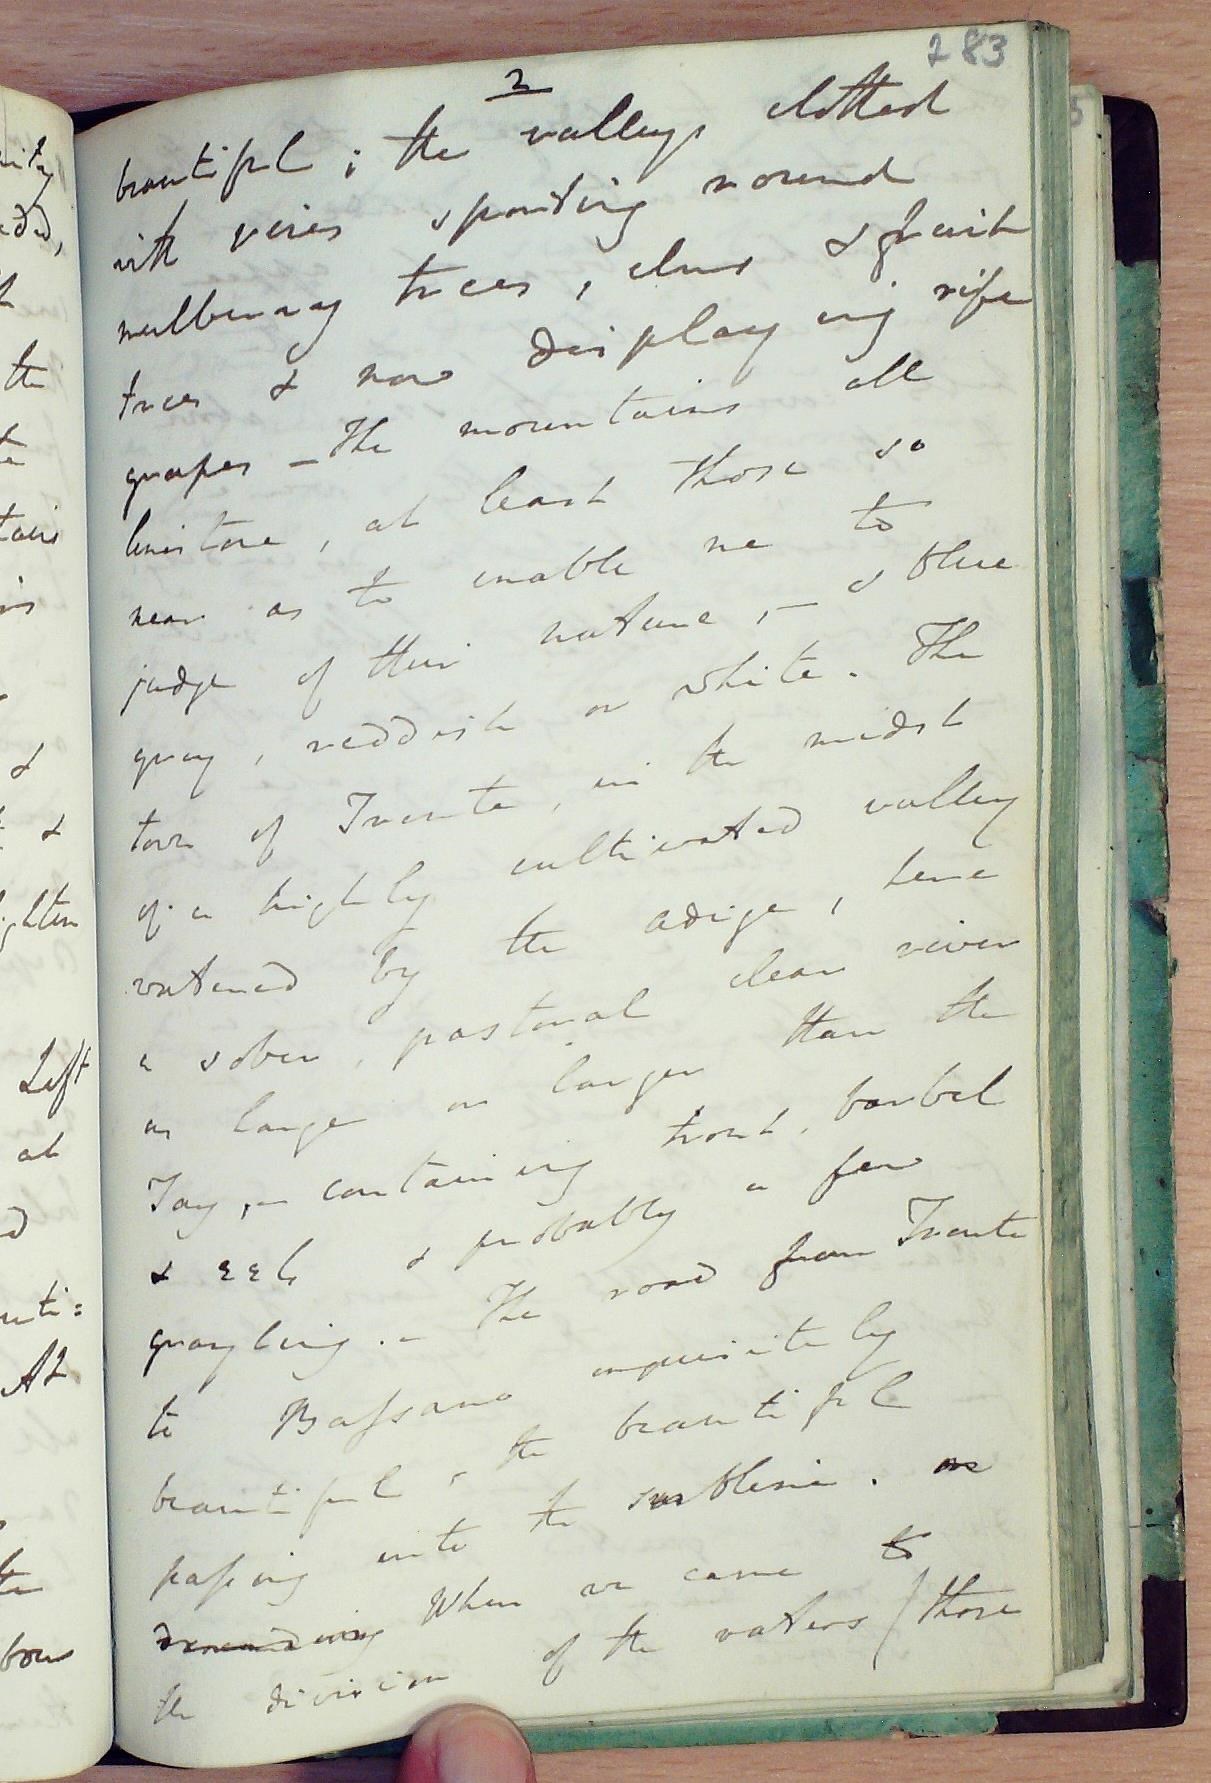 283
2
beautiful; the valleys clothed
with vines sporting round
mulberry trees, elms & fruit
trees & now displaying ripe
grapes – The mountains all
limestone, at least those so
near as to enable me to
judge of their nature, – & blue
gray, reddish or white. The
town of Trente, in the midst
of a highly cultivated valley
watered by the adige, here
a sober, pastoral clear river
as large or larger than the
Tay, – containing trout, barbel
& eels & probably a few
grayling. – The road from Trente
to Bassano exquisitely
beautiful, the beautiful
passing into the sublime. as
descending When we came to
the division of the waters (those